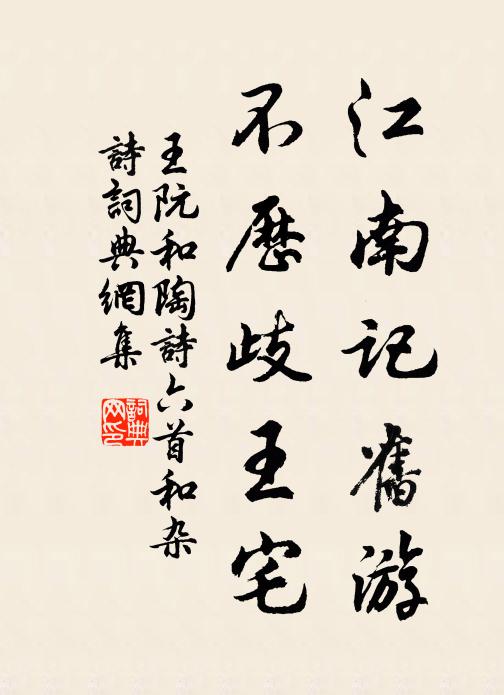 江南记舊游
不歷歧王宅
王阮和陶詩六首和杂
詩詞典網集
詞典
网印